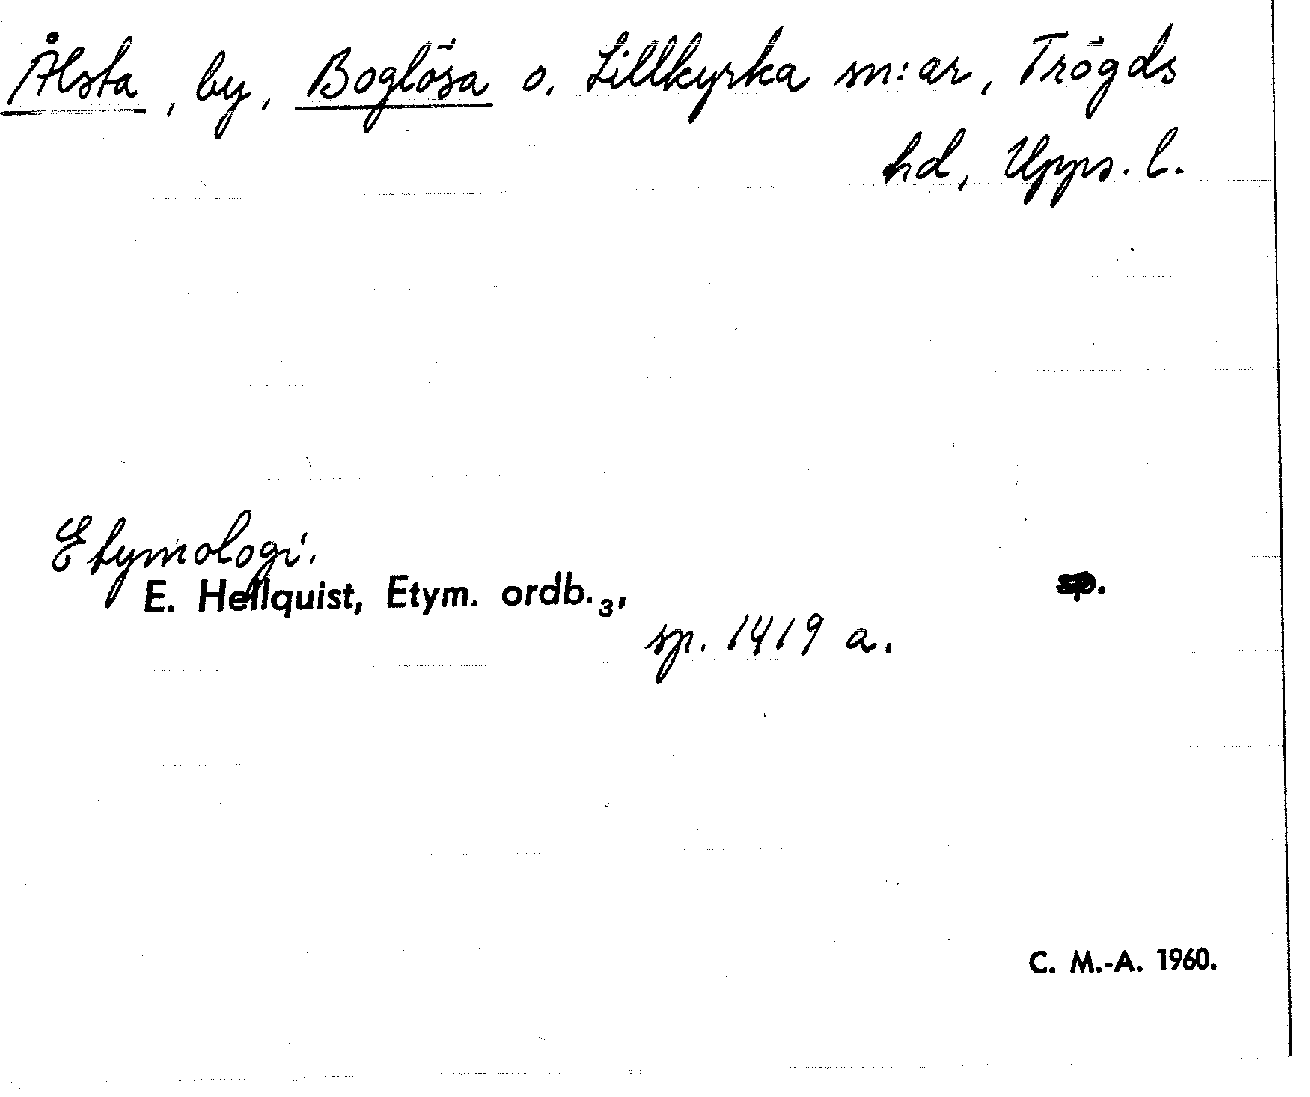 Ålsta, by, Boglösa o. Lillkyrka sn:ar, Trögds
hd, Upps. l.
Etymologi.
E. Hellquist, Etym. ordb.₃, sp.
sp. 1419 a.
C. M.-A. 1960.